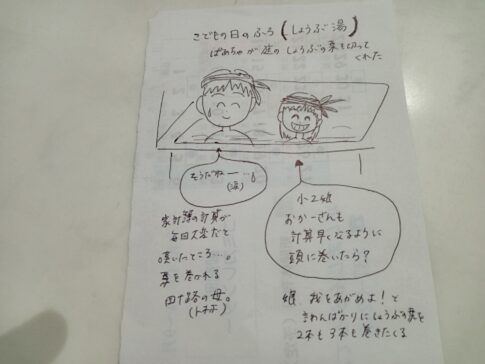 こどもの日のふろ(しょうぶ湯)
ばあちゃが庭のしょうぶの葉を切って
くれた
そうだねー…。
(涙)
小2娘
おかーさんも
計算早くなるように
頭に巻いたら?
家計簿の計算が
毎回大変だと
嘆いたところ…。
葉を巻かれる
四十路の母。
娘 我をあがめよ!と
いわんばかりにしょうぶの葉を
2本も3本も巻きたくる